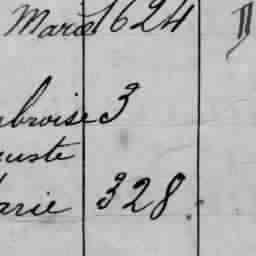 Mara 1624
mbroise 3
guste
arie 328.